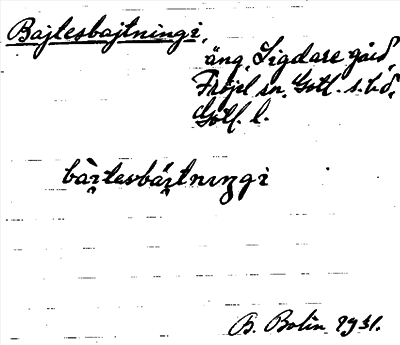 Bajlesbajtningi,
äng, Sigdare gård
Fröjel sn. Gotl. s. hd,
Gotl. l.
bàɪ̯tesbáɪ̯tnɪŋgi
B. Bolin 1931.